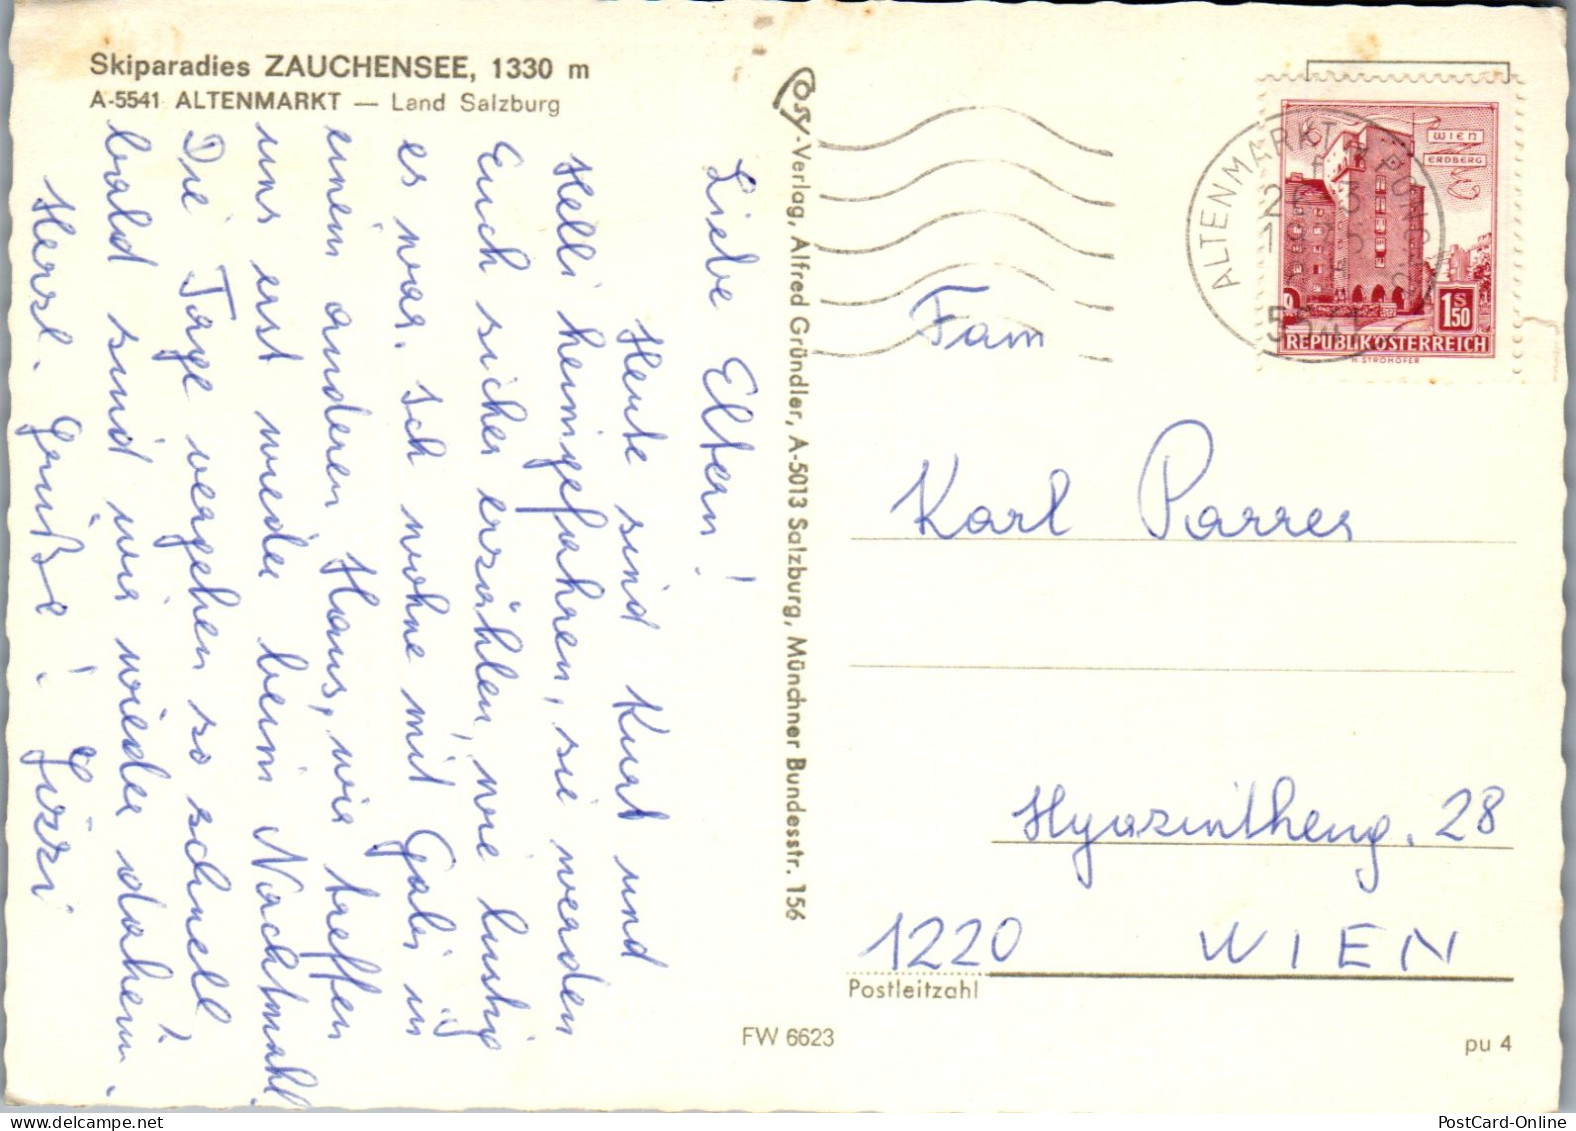 Skiparadies ZAUCHENSEE, 1330 m
A-5541 ALTENMARKT — Land Salzburg
Liebe Eltern!
Heute sind Kurt und
Helli heimgefahren, sie werden
Euch sicher erzählen, wie lustig
es war. Ich wohne mit Gabi in
einem anderen Haus, wir treffen
uns erst wieder beim Nachtmahl.
Die Tage vergehen so schnell,
bald sind wir wieder daheim.
Herzl. Grüße!
Possy-Verlag, Alfred Gründler, A-5013 Salzburg, Münchner Bundesstr. 156
ALTENMARKT
5541
WIEN
ERDBERG
1.50
S
REPUBLIK ÖSTERREICH
H. STROHOFER
Fam
Karl Parrer
Hyazintheng. 28
1220 WIEN
Postleitzahl
FW 6623
pu 4
PostCard-Online